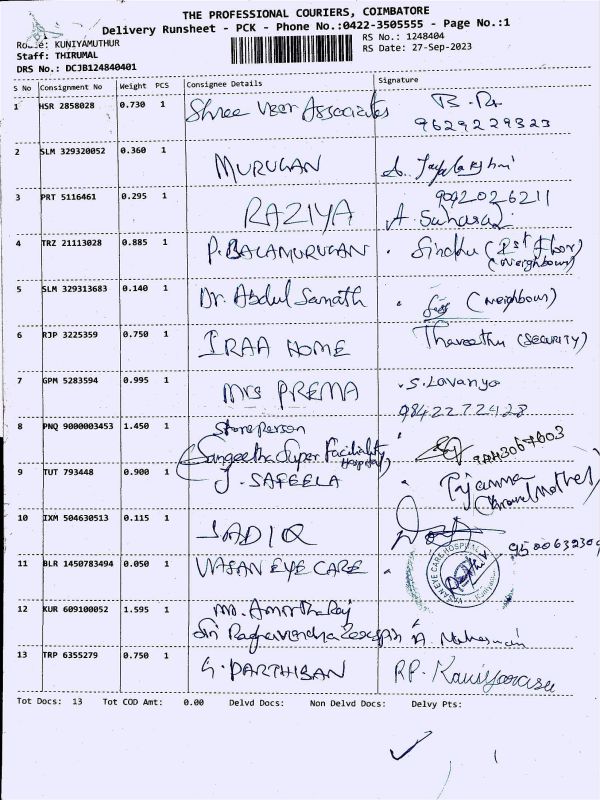 THE PROFESSIONAL COURIERS, COIMBATORE
Delivery Runsheet - PCK - Phone No.:0422-3505555 - Page No.:1
Route: KUNIYAMUTHUR
RS No.: 1248404
Staff: THIRUMAL
RS Date: 27-Sep-2023
DRS No.: DCJB124840401
S No Consignment No Weight PCS Consignee Details Signature
1 HSR 2858028 0.730 1 Shree Veer Associates
9629229323
2 SLM 329320052 0.360 1 MURUGAN
3 PRT 5116461 0.295 1 RAZIYA 9092026211
4 TRZ 21113028 0.885 1 P. BALAMURUGAN Sindhu (1st Floor)
(Neighbour)
5 SLM 329313683 0.140 1 Dr. Abdul Samath (Neighbour)
6 RJP 3225359 0.750 1 IRAA HOME (SECURITY)
7 GPM 5283594 0.995 1 Mrs PREMA S. Lavanya
9842272428
8 PNQ 9000003453 1.450 1 Store person
(Sangeetha Super Faciliality
Hospital)
9 TUT 793448 0.900 1 J. SAFEELA
10 IXM 504630513 0.115 1 SADIQ
11 BLR 1450783494 0.050 1 VASAN EYE CARE VASAN EYE CARE HOSPITAL
12 KUR 609100052 1.595 1 Mr. Amrtha Raj
Sri Raghavendra
13 TRP 6355279 0.750 1 G. PARTHIBAN RP.
Tot Docs: 13 Tot COD Amt: 0.00 Delvd Docs: Non Delvd Docs: Delvy Pts: